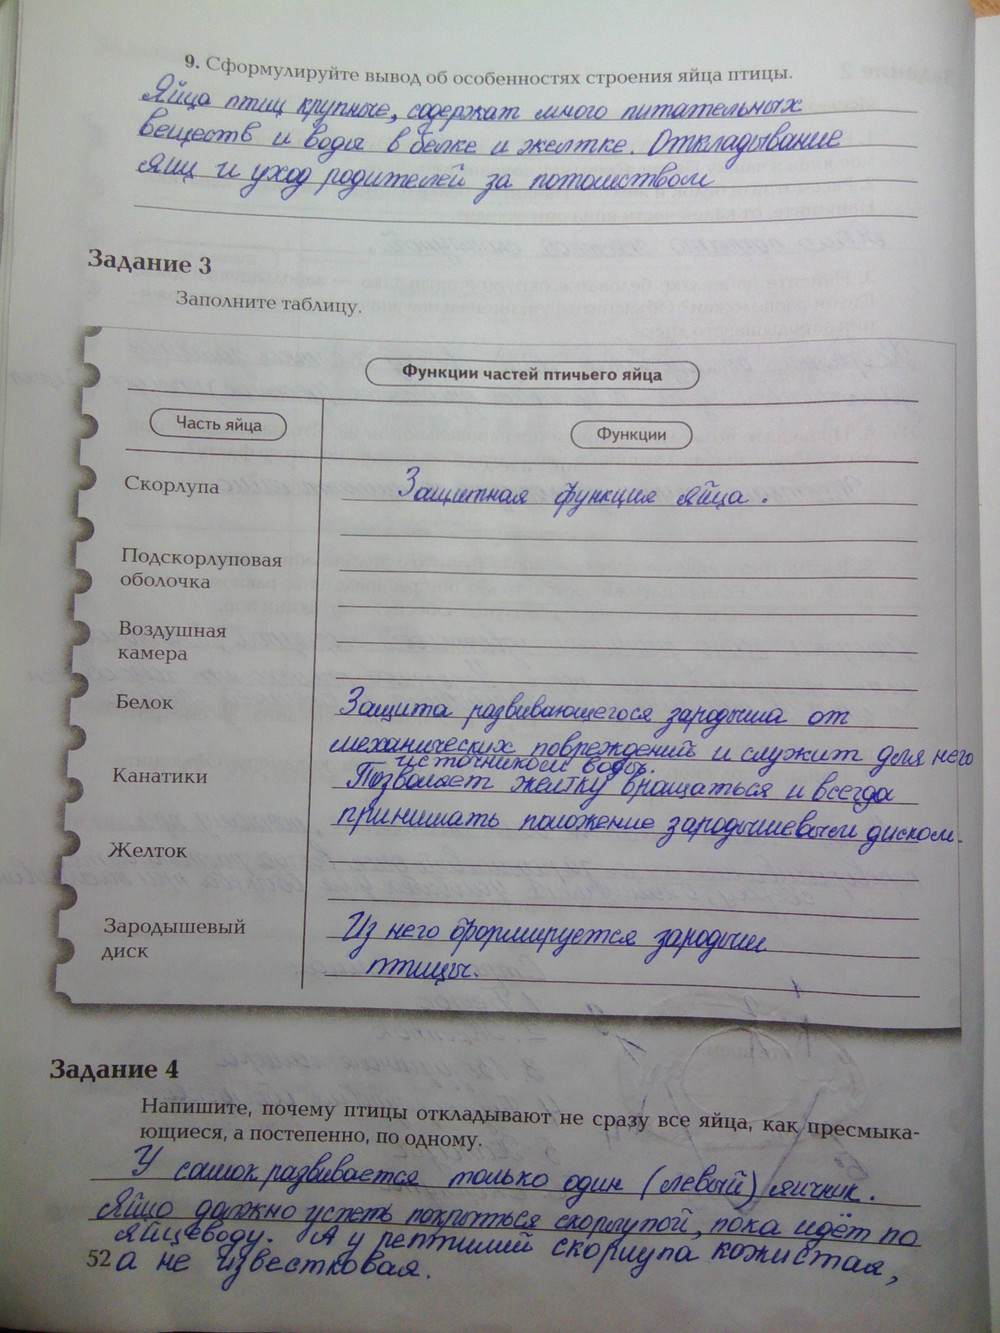 9. Сформулируйте вывод об особенностях строения яйца птицы.
Яйца птиц крупные, содержат много питательных
веществ и воды в белке и желтке. Откладывание
яиц и уход родителей за потомством
Задание 3
Заполните таблицу.
Функции частей птичьего яйца
Часть яйца
Функции
Скорлупа
Защитная функция яйца.
Подскорлуповая
оболочка
Воздушная
камера
Белок
Защита развивающегося зародыша от
механических повреждений и служит для него
источником воды.
Канатики
Позволяет желтку вращаться и всегда
принимать положение зародышевым диском.
Желток
Зародышевый
диск
Из него формируется зародыш
птицы.
Задание 4
Напишите, почему птицы откладывают не сразу все яйца, как пресмыка-
ющиеся, а постепенно, по одному.
У самок развивается только один (левый) яичник.
Яйцо должно успеть покрыться скорлупой, пока идёт по
яйцеводу. А у рептилий скорлупа кожистая,
52
а не известковая.